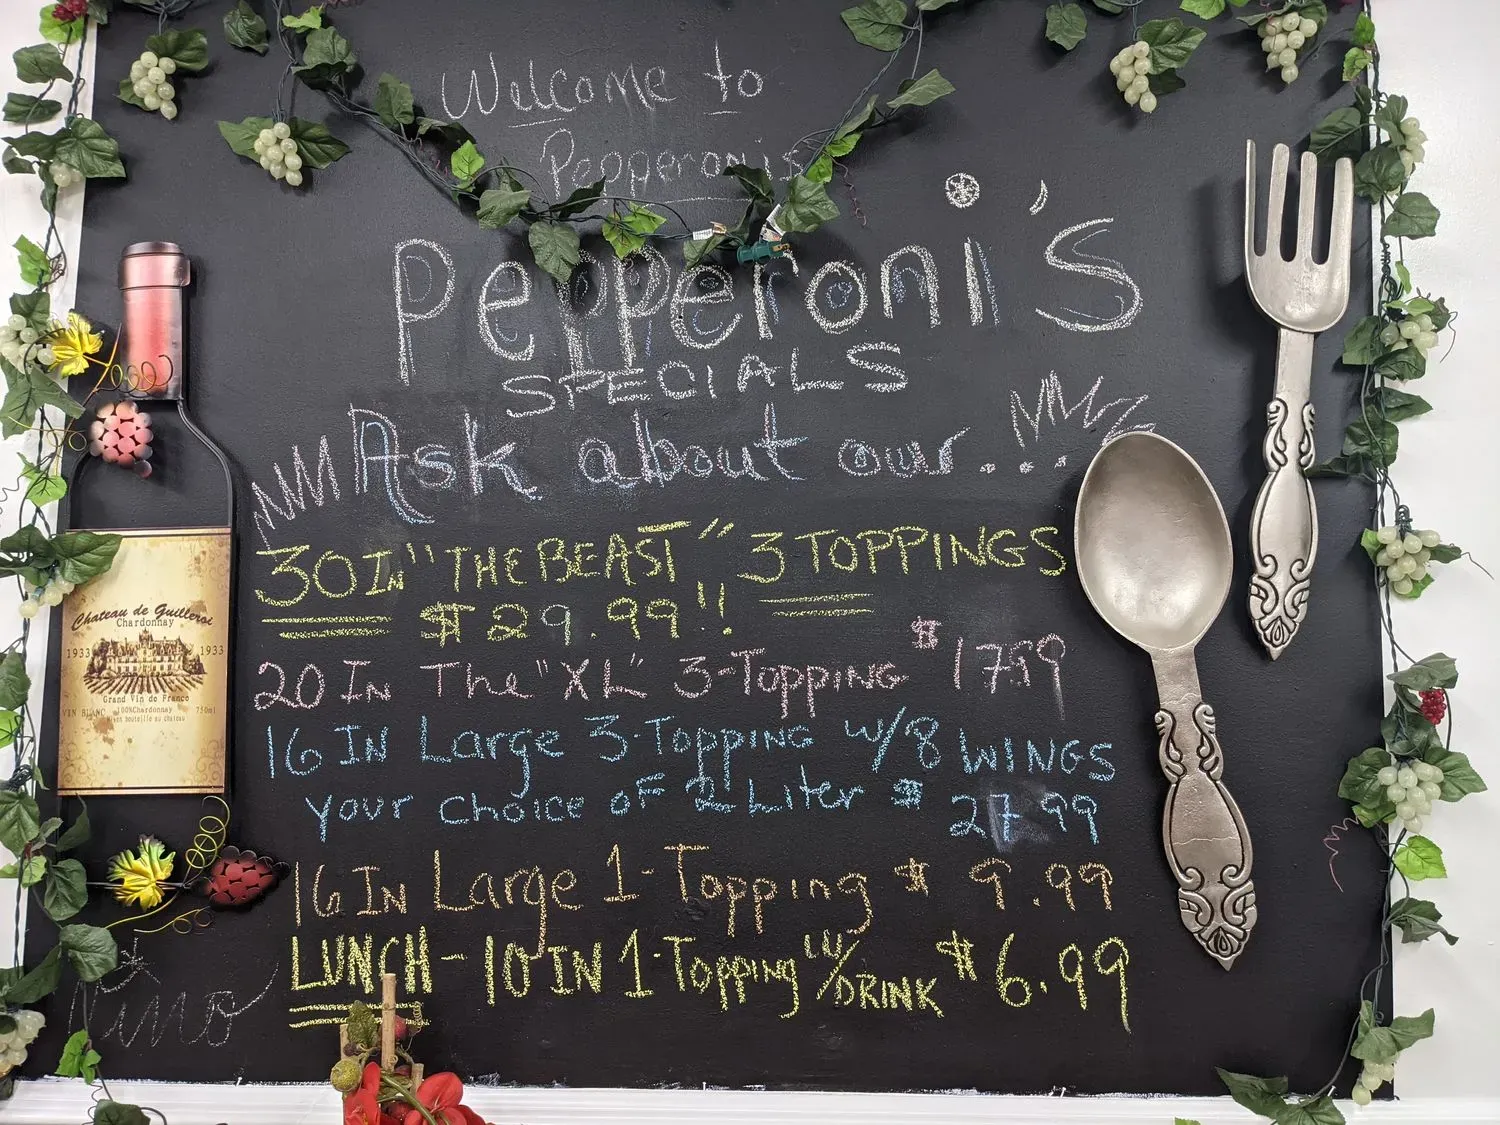 Welcome to
Pepperonis
Pepperoni's
SPECIALS
Ask about our...
30 IN "THE BEAST" 3 TOPPINGS
$29.99!!
20 IN The "XL" 3-Topping $17.99
16 IN Large 3-Topping w/8 WINGS
your choice of 2 Liter $27.99
16 IN Large 1-Topping $9.99
LUNCH - 10 IN 1-Topping w/DRINK $6.99
Chateau de Guilleroi
Chardonnay
1933 1933
Grand Vin de France
VIN BLANC 100%Chardonnay 750ml
Mis en bouteille au chateau